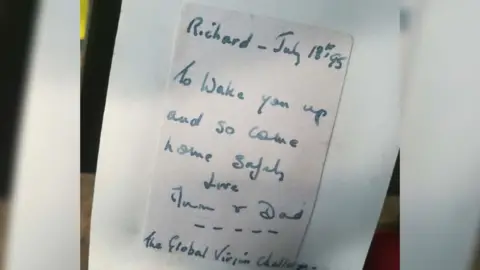 Richard - July 18th '95
To Wake you up
and so come
home safely
Love
Mum & Dad
- - - - -
The Global Virgin Challenge.